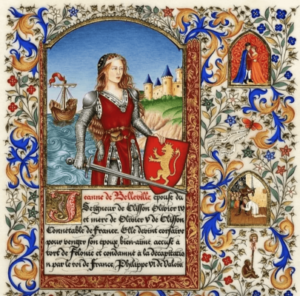 Jeanne de Belleville épouse du
Seigneur de Clisson Olivier IV
et mère de Olivier V de Clisson
Connetable de France. Elle devint corsaire
pour venger son époux bien-aimé accusé a
tort de felonie et condamné a la decapitatio
n par le roi de France, Philippe VI de Valois